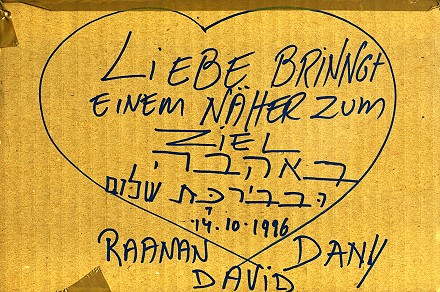 LiEBE BRiNNGt
EiNEM NÄHER ZUM
ZiEL
באהבה
ובבירכת שלום
14.10.1996
RAANAN DANY
DAViD